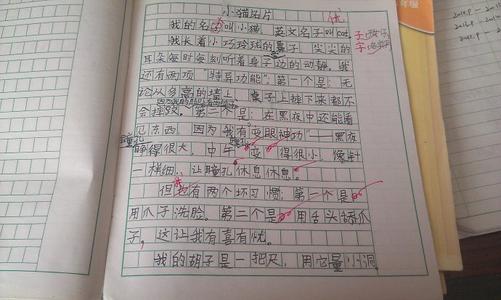 小猫名片
优
我的名字叫小猫,英文名子叫cat。
我长着小巧玲珑的鼻子,尖尖的
耳朵每时每刻听着身子边的动静。我
还有两项“特异功能”。第一个是:无
论从多高的墙上、桌子上摔下来都不
会摔死。第二个是:在黑夜中还能看
见东西,因为我有变眼神功——黑夜
瞳孔
睁得很大,中午变得很小,像针
一样细,让瞳孔休息休息。
但我也有两个坏习惯:第一个是
用爪子洗脸。第二个是用舌头舔爪
子,这让我有喜有忧。
我的胡子是一把尺,用它量小洞